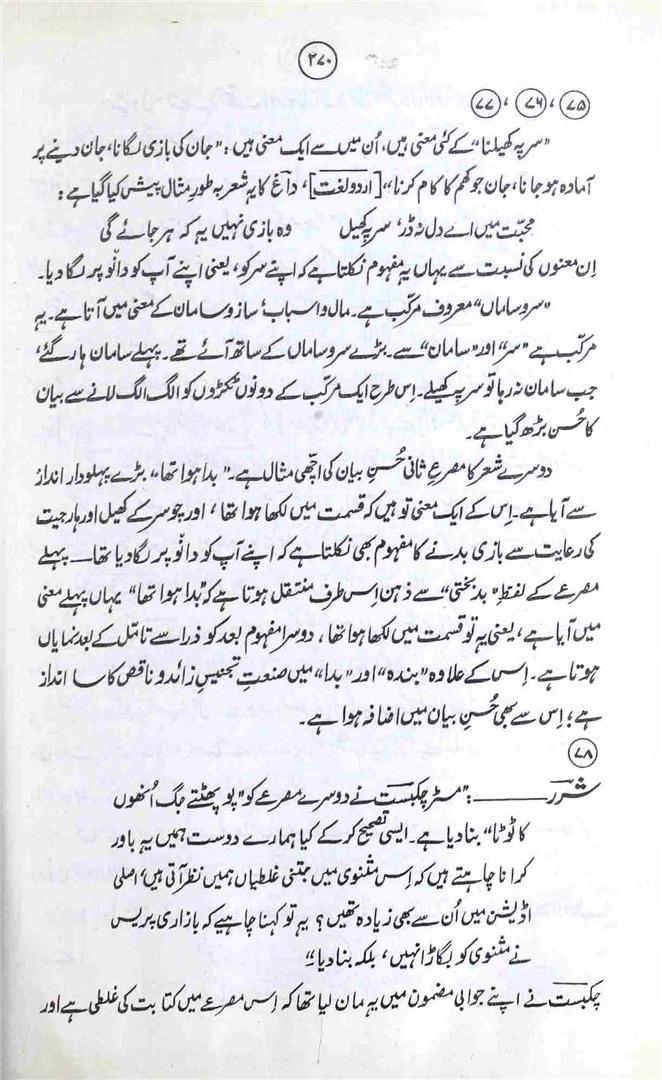 ۲۷۰
۷۵، ۷۶، ۷۷
"سر پہ کھیلنا" کے کئی معنی ہیں، اُن میں سے ایک معنی ہیں: "جان کی بازی لگانا، جان دینے پر
آمادہ ہو جانا، جان جوکھم کا کام کرنا"، [اردو لغت]، داغ کا یہ شعر بہ طورِ مثال پیش کیا گیا ہے:
محبّت میں اے دل نہ ڈر، سر پہ کھیل    وہ بازی نہیں یہ کہ ہر جائے گی
اِن معنوں کی نسبت سے یہاں یہ مفہوم نکلتا ہے کہ اپنے سر کو، یعنی اپنے آپ کو دانْو پر لگا دیا۔
"سر و ساماں" معروف مرکّب ہے۔ مال و اسباب، ساز و سامان کے معنی میں آتا ہے۔ یہ
مرکّب ہے "سر" اور "سامان" سے۔ بڑے سر و ساماں کے ساتھ آئے تھے۔ پہلے سامان ہار گئے،
جب سامان نہ رہا تو سر پہ کھیلے۔ اِس طرح ایک مرکّب کے دونوں ٹکڑوں کو الگ الگ لانے سے بیان
کا حُسن بڑھ گیا ہے۔
دوسرے شعر کا مصرعِ ثانی حُسنِ بیان کی اچھّی مثال ہے۔ "بدا ہوا تھا"، بڑے پہلودار انداز
سے آیا ہے۔ اِس کے ایک معنی تو ہیں کہ قسمت میں لکھا ہوا تھا، اور چوسر کے کھیل اور ہار جیت
کی رعایت سے بازی بدنے کا مفہوم بھی نکلتا ہے کہ اپنے آپ کو دانْو پر لگا دیا تھا — پہلے
مصرعے کے لفظ "بدبختی" سے ذہن اِس طرف منتقل ہوتا ہے کہ "بدا ہوا تھا" یہاں پہلے معنی
میں آیا ہے، یعنی یہ تو قسمت میں لکھا ہوا تھا، دوسرا مفہوم بعد کو ذرا سے تامّل کے بعد نمایاں
ہوتا ہے۔ اِس کے علاوہ "بندہ" اور "بدا" میں صنعتِ تجنیسِ زائد و ناقص کا سا انداز
ہے؛ اِس سے بھی حُسنِ بیان میں اضافہ ہوا ہے۔
۷۸
شرر ———: "مسٹر چکبست نے دوسرے مصرعے کو "پو پھٹتے جگ اُنھوں
کا ٹوٹا" بنا دیا ہے۔ ایسی تصحیح کر کے کیا ہمارے دوست ہمیں یہ باور
کرانا چاہتے ہیں کہ اِس مثنوی میں جتنی غلطیاں ہمیں نظر آتی ہیں، اصلی
اڈیشن میں اُن سے بھی زیادہ تھیں؟ یہ تو کہنا چاہیے کہ بازاری پریس
نے مثنوی کو بگاڑا نہیں، بلکہ بنا دیا۔"
چکبست نے اپنے جوابی مضمون میں یہ مان لیا تھا کہ اِس مصرعے میں کتابت کی غلطی ہے اور